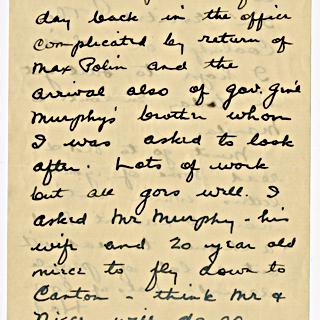 day back in the office
complicated by return of
Max Polin and the
arrival also of Gov. Gen'l
Murphy's brother whom
I was asked to look
after. Lots of work
but all goes well. I
asked Mr Murphy - his
wife and 20 year old
niece to fly down to
Canton - think Mr &
Niece will do so